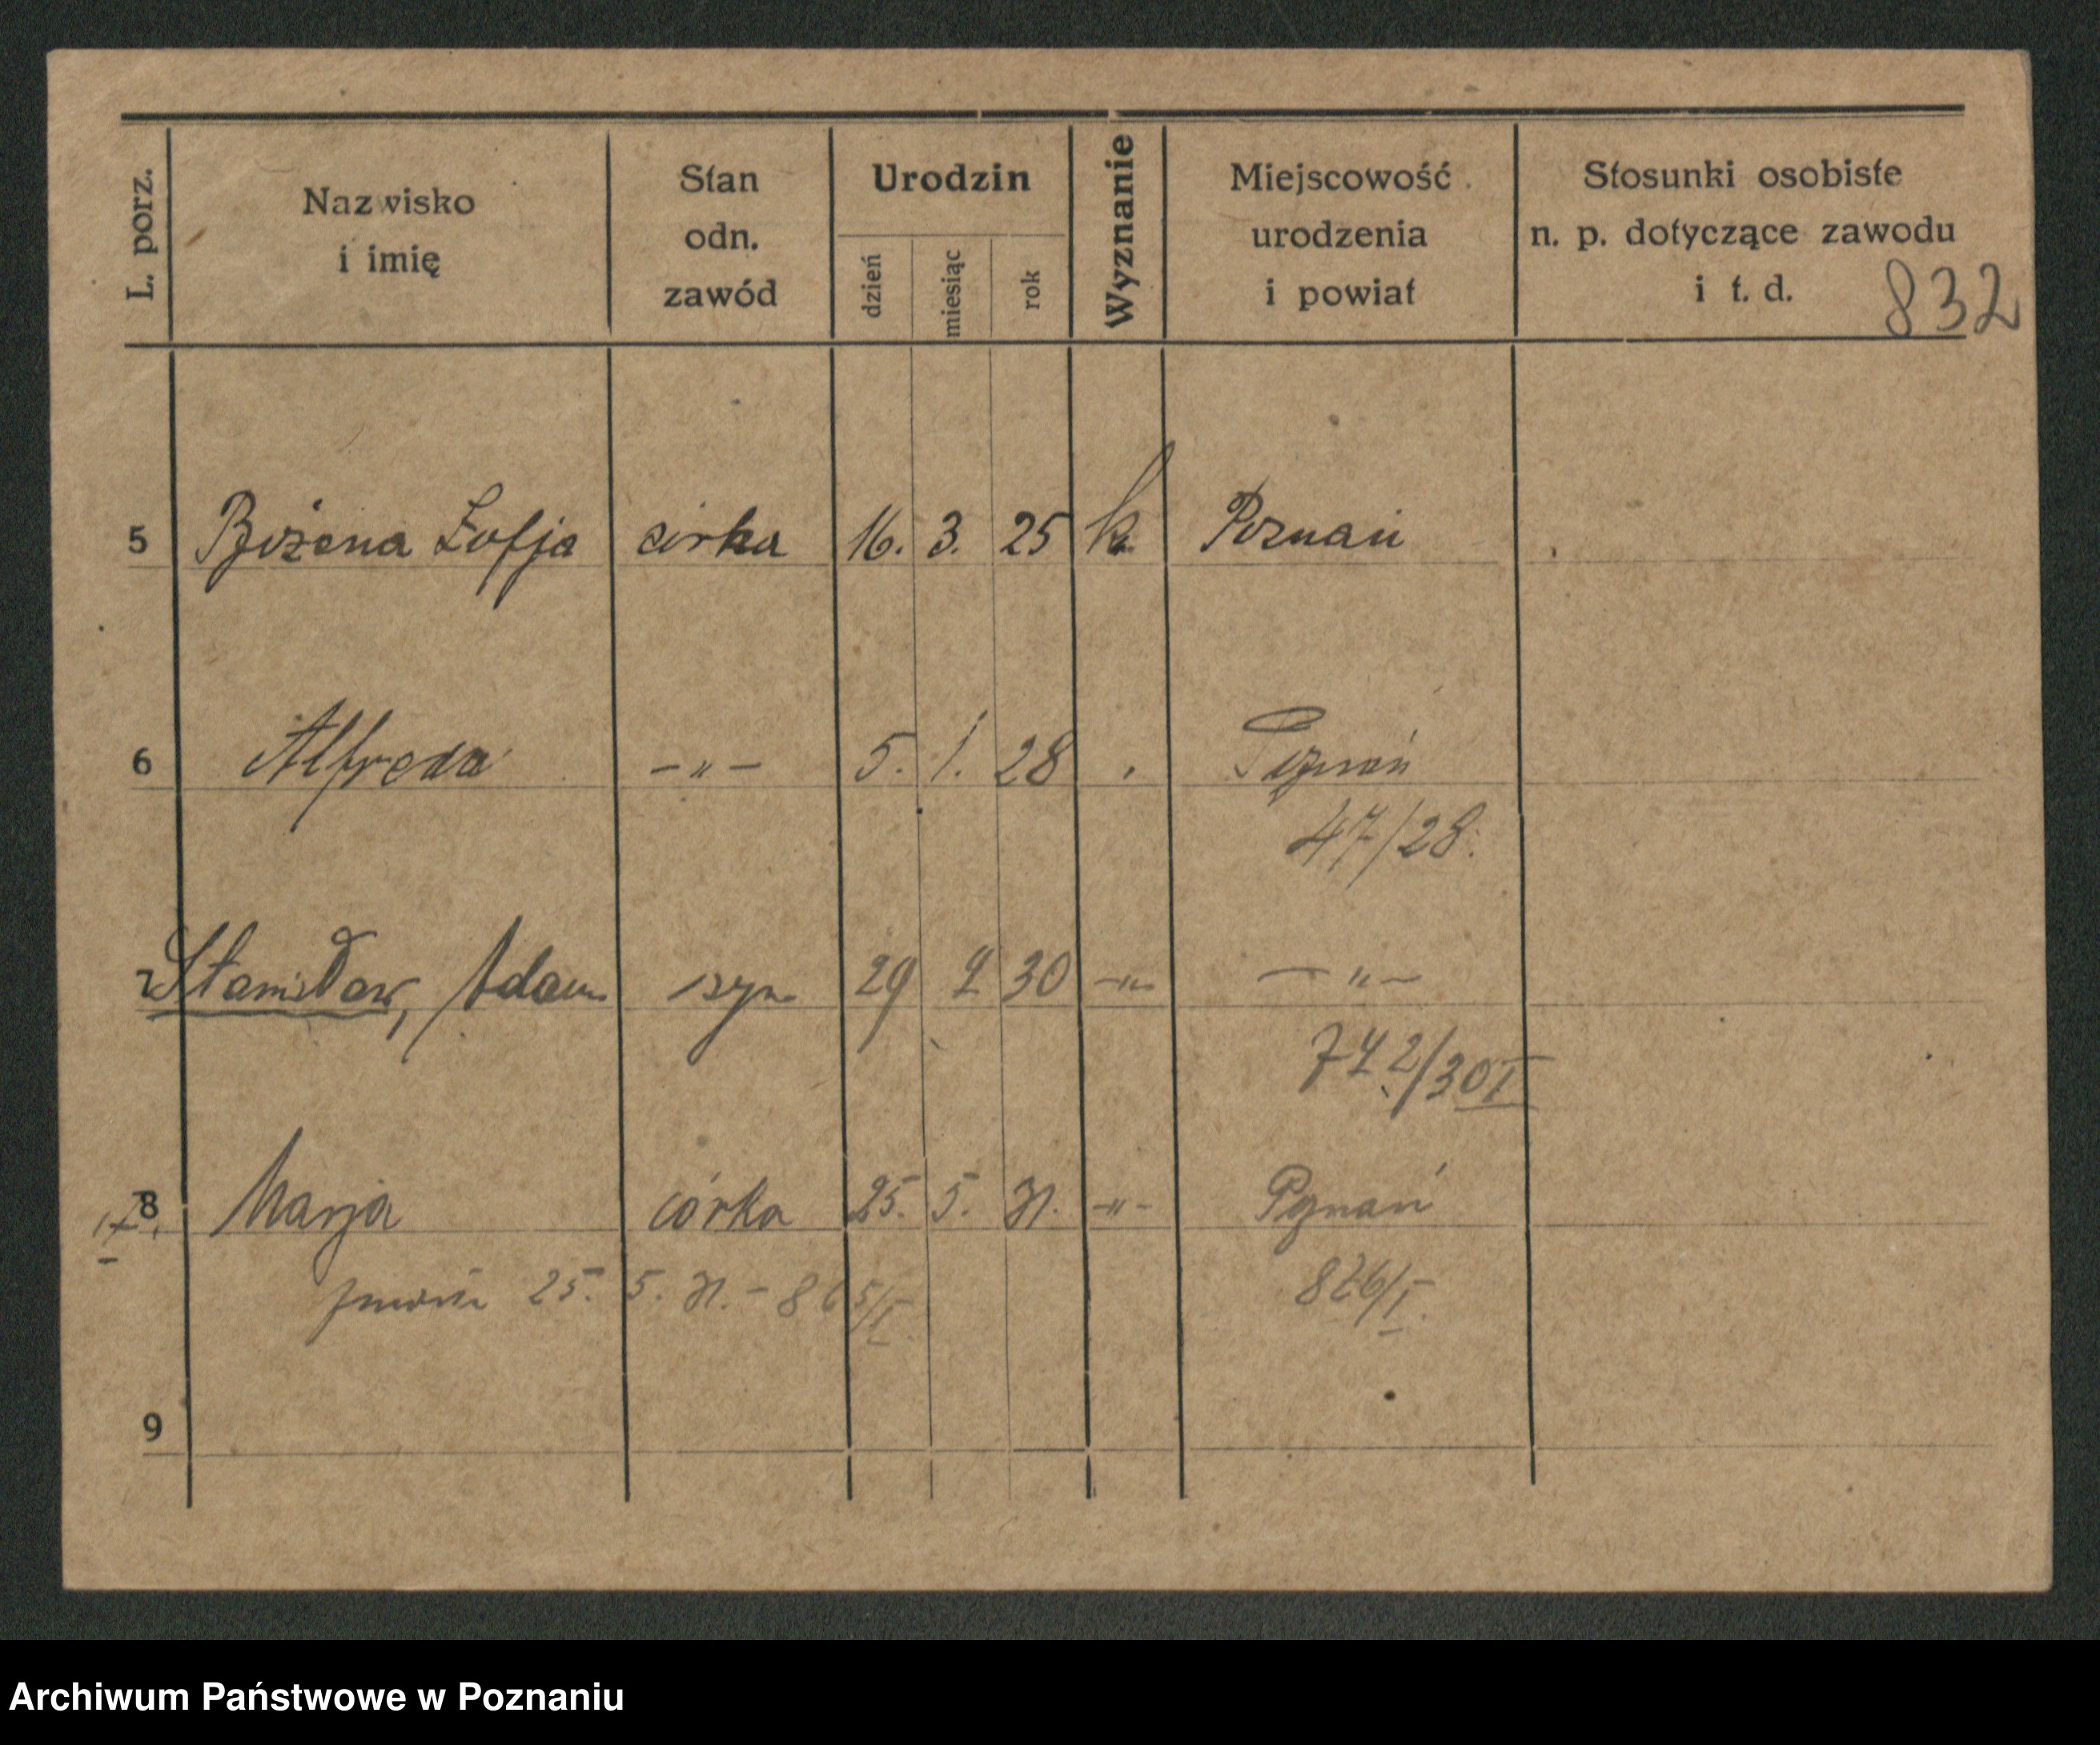 L. porz.
Nazwisko
i imię
Stan
odn.
zawód
Urodzin
dzień
miesiąc
rok
Wyznanie
Miejscowość
urodzenia
i powiat
Stosunki osobiste
n. p. dotyczące zawodu
i t. d.
832
5 Bożena Zofja córka 16. 3. 25 k. Poznań
6 Alfreda -„- 5. 1. 28 Poznań
47/28.
Stanisław, Adam syn 29 30 -„- -„-
742/30 I
8 Marja córka 25. 5. 31. -„- Poznań
25. 5. 31. - 865/I 826/I.
9
Archiwum Państwowe w Poznaniu